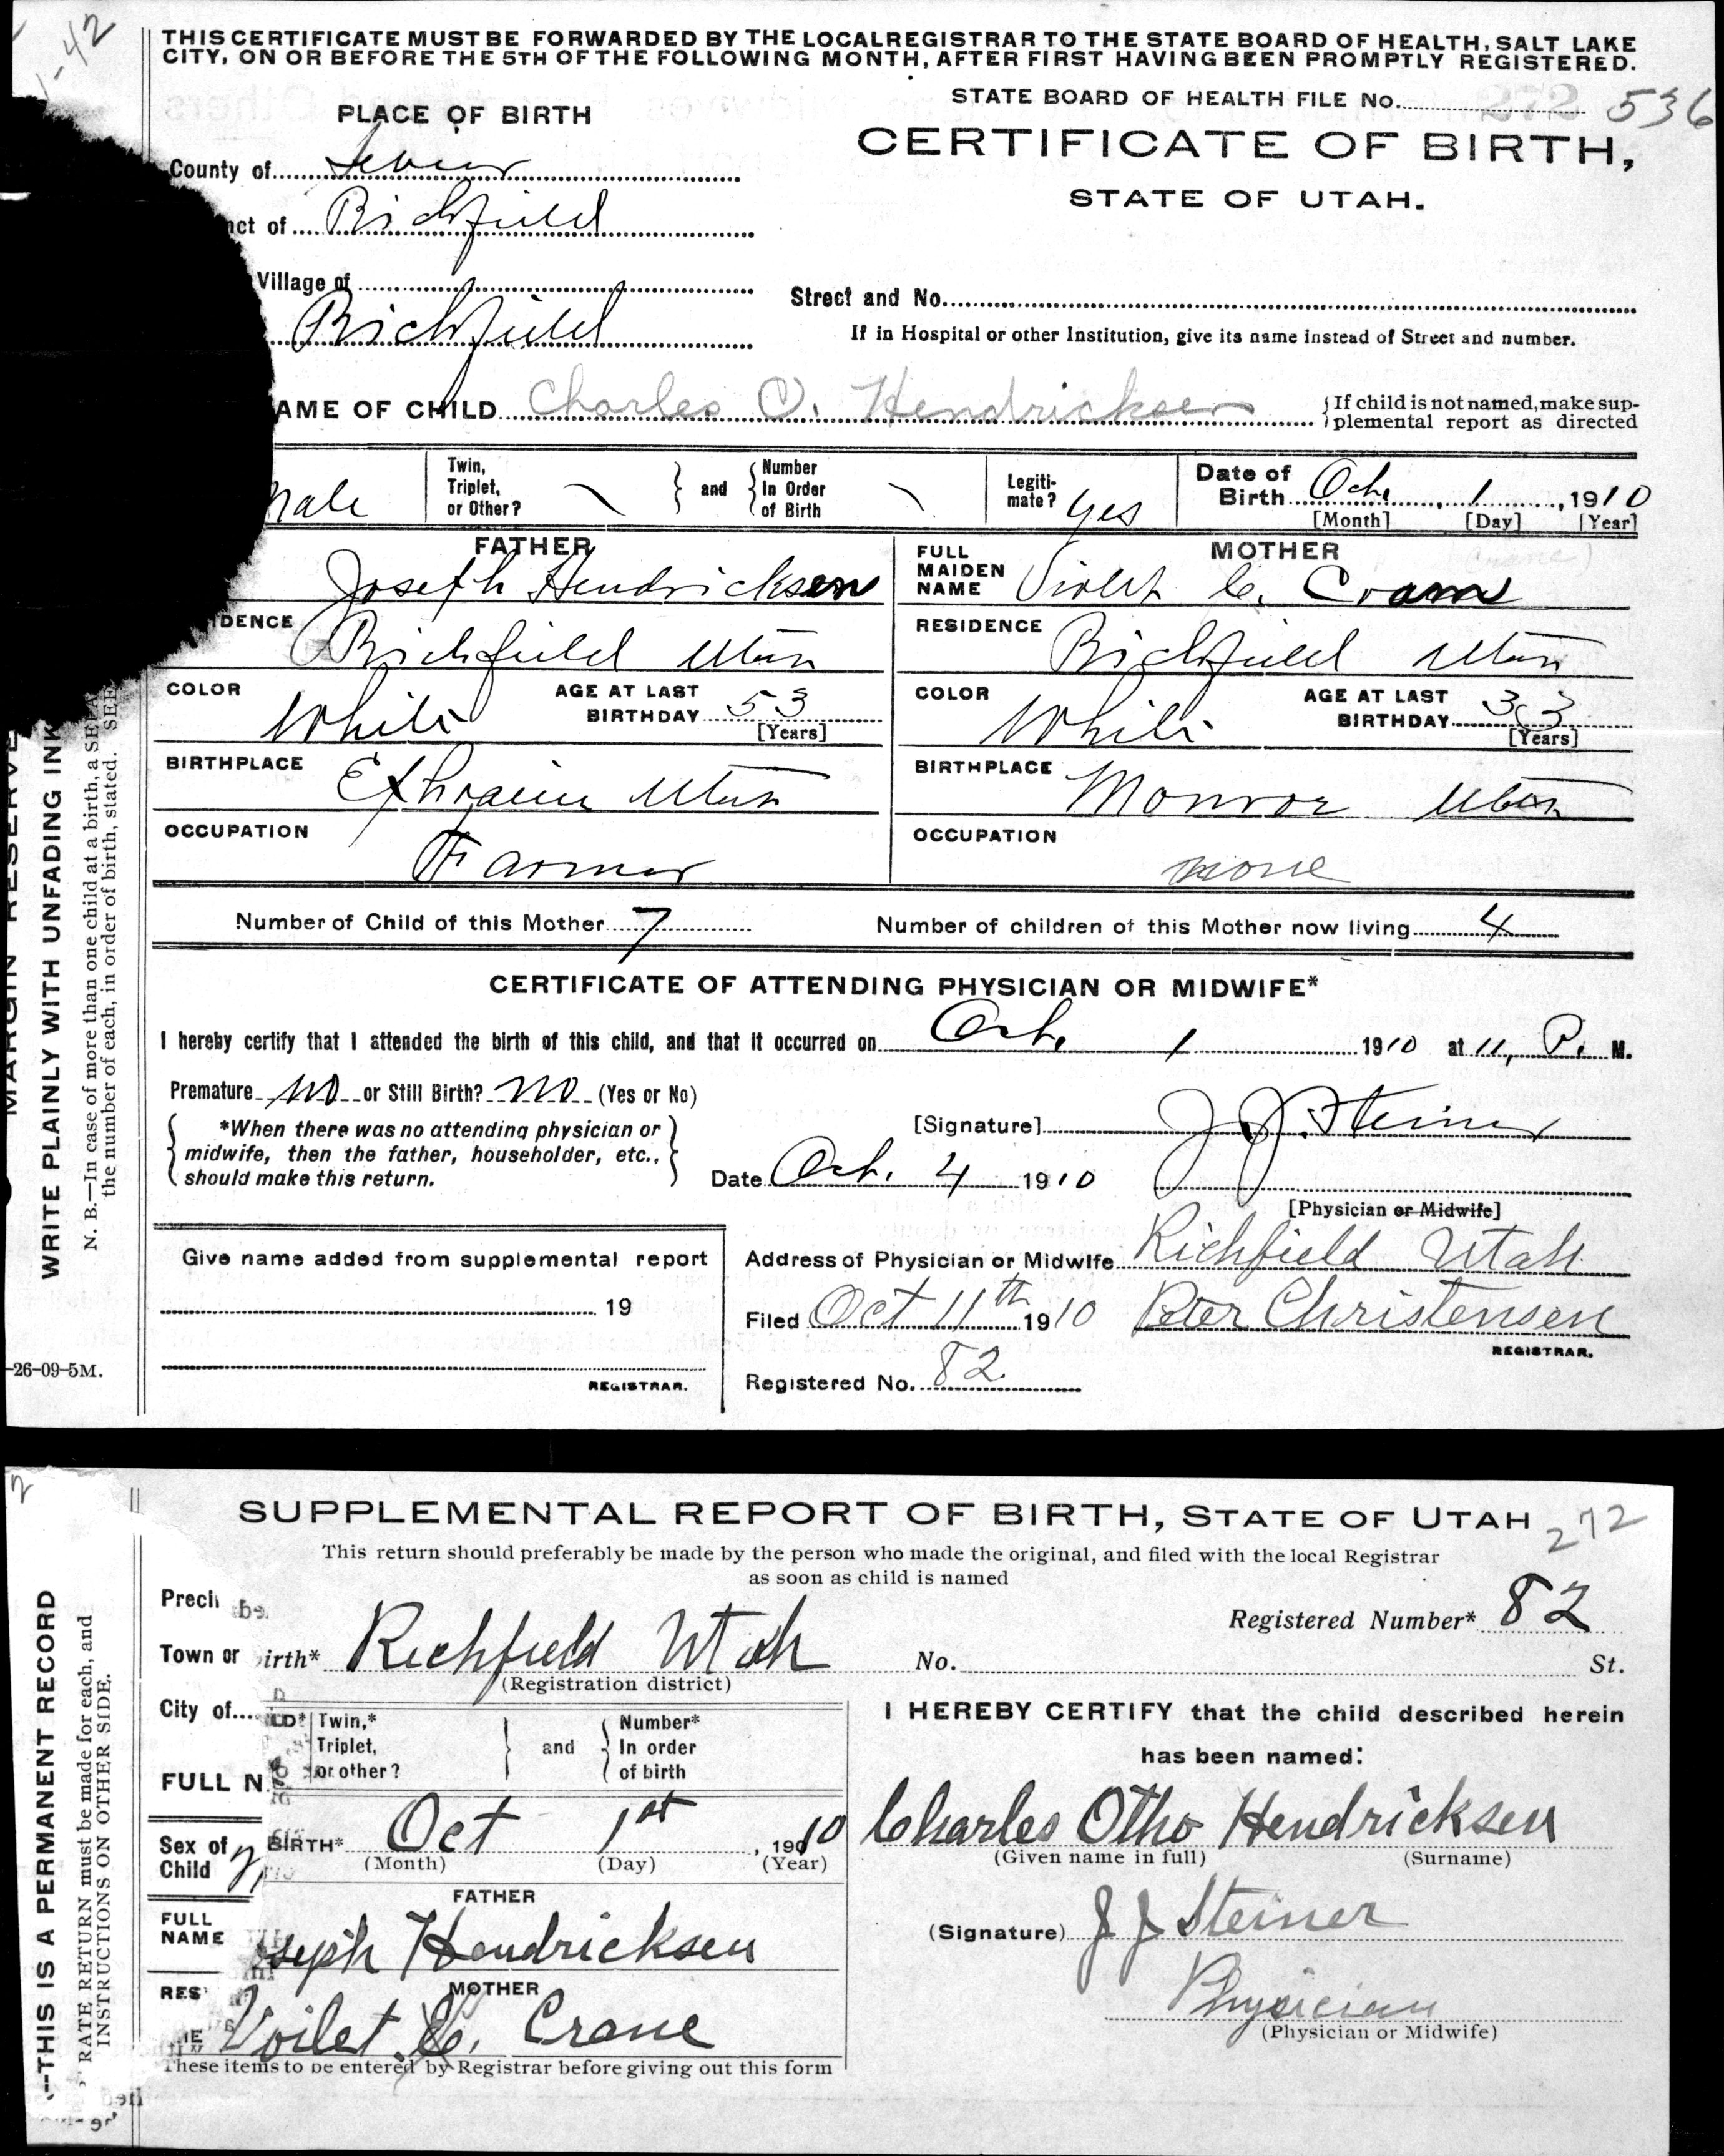 1-42
THIS CERTIFICATE MUST BE FORWARDED BY THE LOCAL REGISTRAR TO THE STATE BOARD OF HEALTH, SALT LAKE
CITY, ON OR BEFORE THE 5TH OF THE FOLLOWING MONTH, AFTER FIRST HAVING BEEN PROMPTLY REGISTERED.
STATE BOARD OF HEALTH FILE No. 272 536
PLACE OF BIRTH
CERTIFICATE OF BIRTH,
STATE OF UTAH.
County of Sevier
nct of Richfield
Village of
Richfield
Street and No.
If in Hospital or other Institution, give its name instead of Street and number.
AME OF CHILD Charles O. Hendricksen
If child is not named, make sup-
plemental report as directed
male
Twin, Triplet, or Other?
and
Number In Order of Birth
Legiti-mate? yes
Date of Birth Oct. 1, 1910
[Month] [Day] [Year]
FATHER
Joseph Hendricksen
MOTHER
(Crane)
FULL MAIDEN NAME Violet C. Crane
DENCE Richfield Utah
RESIDENCE Richfield Utah
COLOR White
AGE AT LAST BIRTHDAY 53 [Years]
COLOR White
AGE AT LAST BIRTHDAY 33 [Years]
BIRTHPLACE Ephraim Utah
BIRTHPLACE Monroe Utah
OCCUPATION Farmer
OCCUPATION none
Number of Child of this Mother 7
Number of children of this Mother now living 4
CERTIFICATE OF ATTENDING PHYSICIAN OR MIDWIFE*
I hereby certify that I attended the birth of this child, and that it occurred on Oct. 1 1910 at 11, P. M.
Premature no or Still Birth? no (Yes or No)
*When there was no attending physician or
midwife, then the father, householder, etc.,
should make this return.
[Signature] J. J. Steiner
Date Oct. 4 1910
[Physician or Midwife]
Give name added from supplemental report
19
REGISTRAR.
Address of Physician or Midwife Richfield Utah
Filed Oct 11th 1910 Peter Christensen
REGISTRAR.
Registered No. 82
MARGIN RESERVE
WRITE PLAINLY WITH UNFADING INK
N. B.—In case of more than one child at a birth, a SEPA
the number of each, in order of birth, stated. SEE
-26-09-5M.
2
SUPPLEMENTAL REPORT OF BIRTH, STATE OF UTAH 272
This return should preferably be made by the person who made the original, and filed with the local Registrar
as soon as child is named
Preci
Registered Number* 82
Town or
irth* Richfield Utah
(Registration district)
No. St.
City of
LD* Twin,* Triplet, or other?
and
Number* In order of birth
FULL N
Sex of Child
BIRTH* Oct 1st, 1910
(Month) (Day) (Year)
FATHER
FULL NAME
oseph Hendricksen
RES
MOTHER
Voilet C. Crane
These items to be entered by Registrar before giving out this form
I HEREBY CERTIFY that the child described herein
has been named:
Charles Otho Hendricksen
(Given name in full) (Surname)
(Signature) J J Steiner
Physician
(Physician or Midwife)
--THIS IS A PERMANENT RECORD
RATE RETURN must be made for each, and
INSTRUCTIONS ON OTHER SIDE.